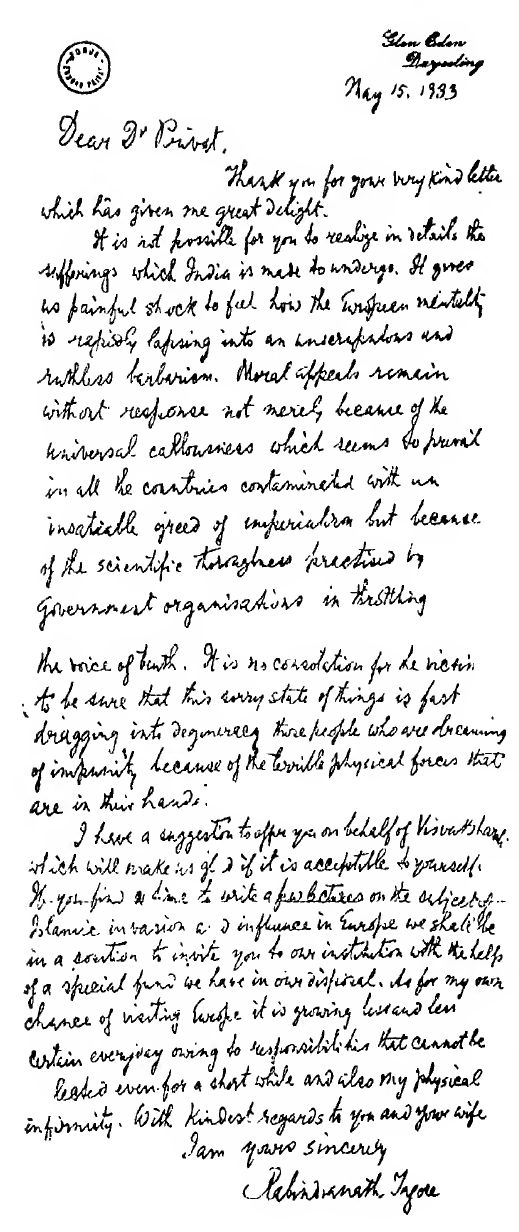 Glen Eden
Darjeeling
May 15, 1933
Dear Dr Privat,
Thank you for your very kind letter
which has given me great delight.
It is not possible for you to realize in details the
sufferings which India is made to undergo. It gives
us painful shock to feel how the European mentality
is rapidly lapsing into an unscrupulous and
ruthless barbarism. Moral appeals remain
without response not merely because of the
universal callousness which seems to prevail
in all the countries contaminated with an
insatiable greed of imperialism but because
of the scientific thoroughness practised by
Government organisations in throttling
the voice of truth. It is no consolation for the victim
to be sure that this sorry state of things is fast
dragging into degeneracy those people who are dreaming
of impunity because of the terrible physical forces that
are in their hands.
I have a suggestion to offer you on behalf of Visvabharati
which will make us glad if it is acceptible to yourself.
If you find time to write a few lectures on the subject of
Islamic invasion and influence in Europe we shall be
in a position to invite you to our institution with the help
of a special fund we have in our disposal. As for my own
chance of visiting Europe it is growing less and less
certain everyday owing to responsibilities that cannot be
even for a short while and also my physical
infirmity. With kindest regards to you and your wife
I am yours sincerely
Rabindranath Tagore